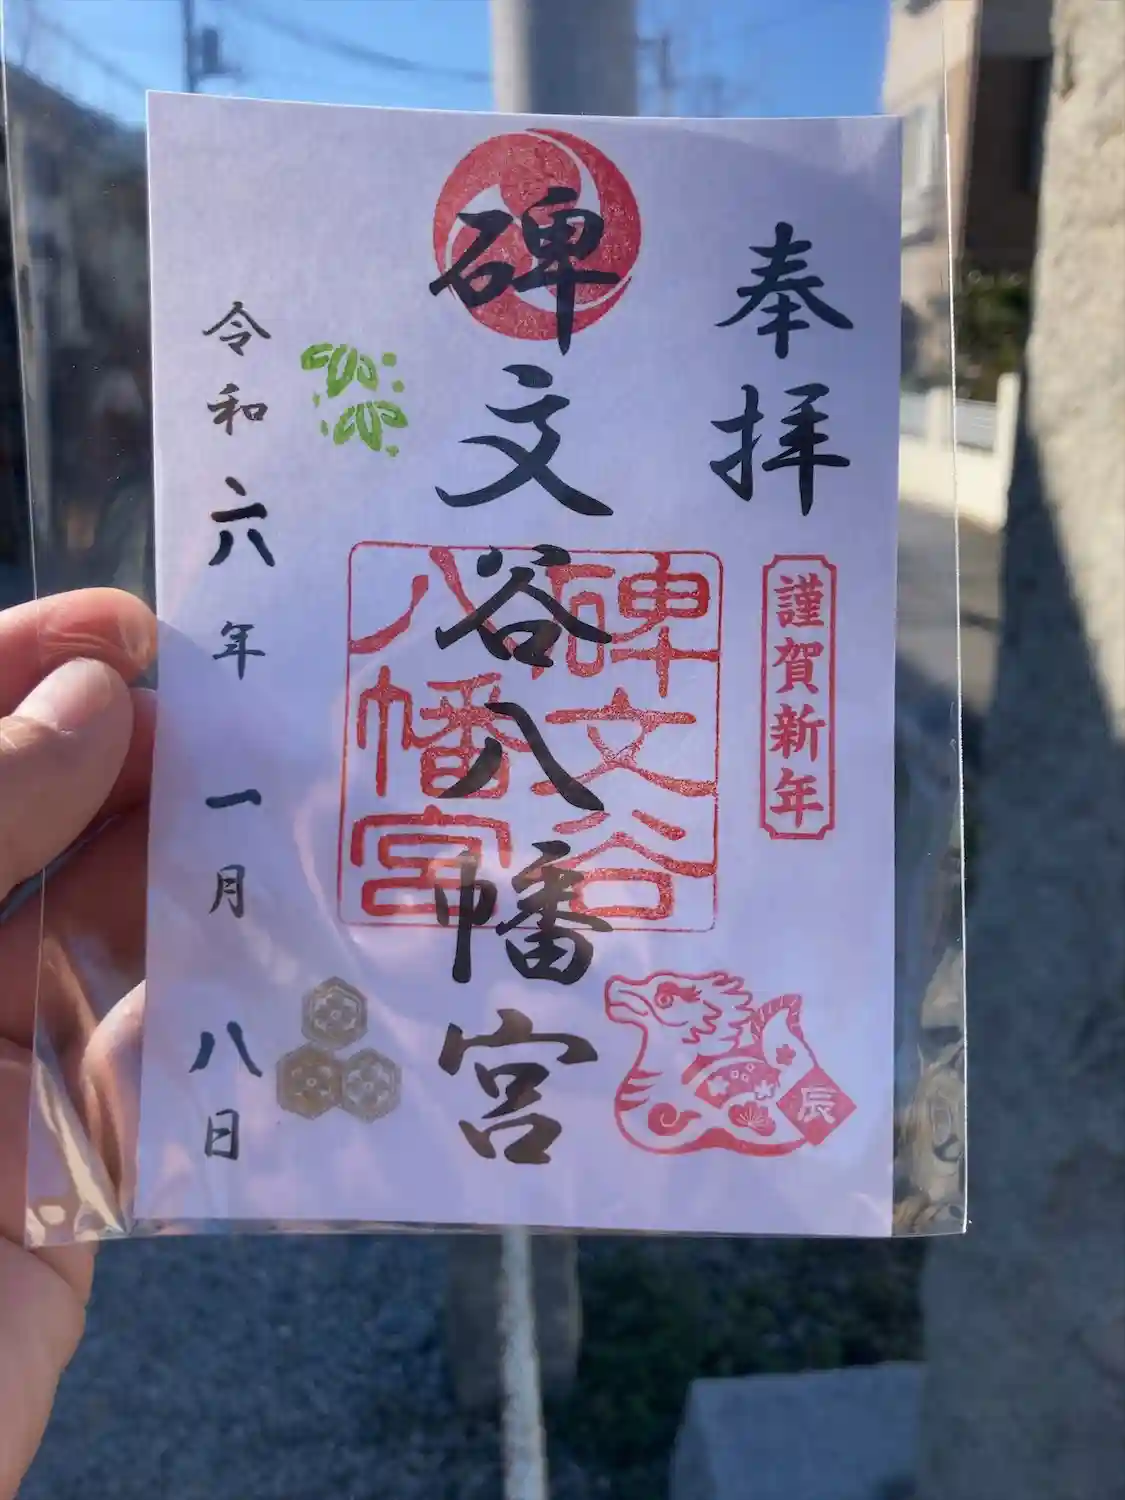 奉拝
謹賀新年
碑文谷八幡宮
碑文谷
八幡宮
辰
令和六年一月八日